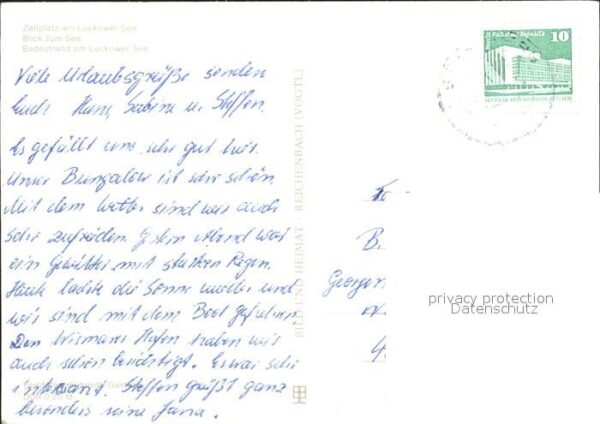 Zeltplatz am Luckower See
Blick zum See
Badestrand am Luckower See
Viele Urlaubsgrüße senden
Euch Hans, Sabine u. Steffen.
Es gefällt uns sehr gut hier.
Unser Bungalow ist sehr schön.
Mit dem Wetter sind wir auch
sehr zufrieden. Gestern Abend war
ein Gewitter mit starken Regen.
Heute lachte die Sonne wieder und
wir sind mit dem Boot gefahren.
Den Wismarer Hafen haben wir
auch schon besichtigt. Es war sehr
interessant. Steffen grüßt ganz
besonders seine Jana.
BILD UND HEIMAT · REICHENBACH (VOGTL)
10
Berlin, Palast der Republik
Fr
B.
Georgen
4.
privacy protection
Datenschutz